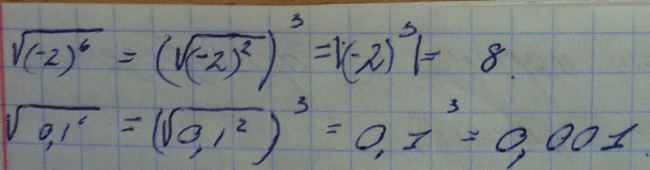 √(-2)⁶ = (√(-2)²)³ = |(-2)³| = 8.
√0,1⁶ = (√0,1²)³ = 0,1³ = 0,001.